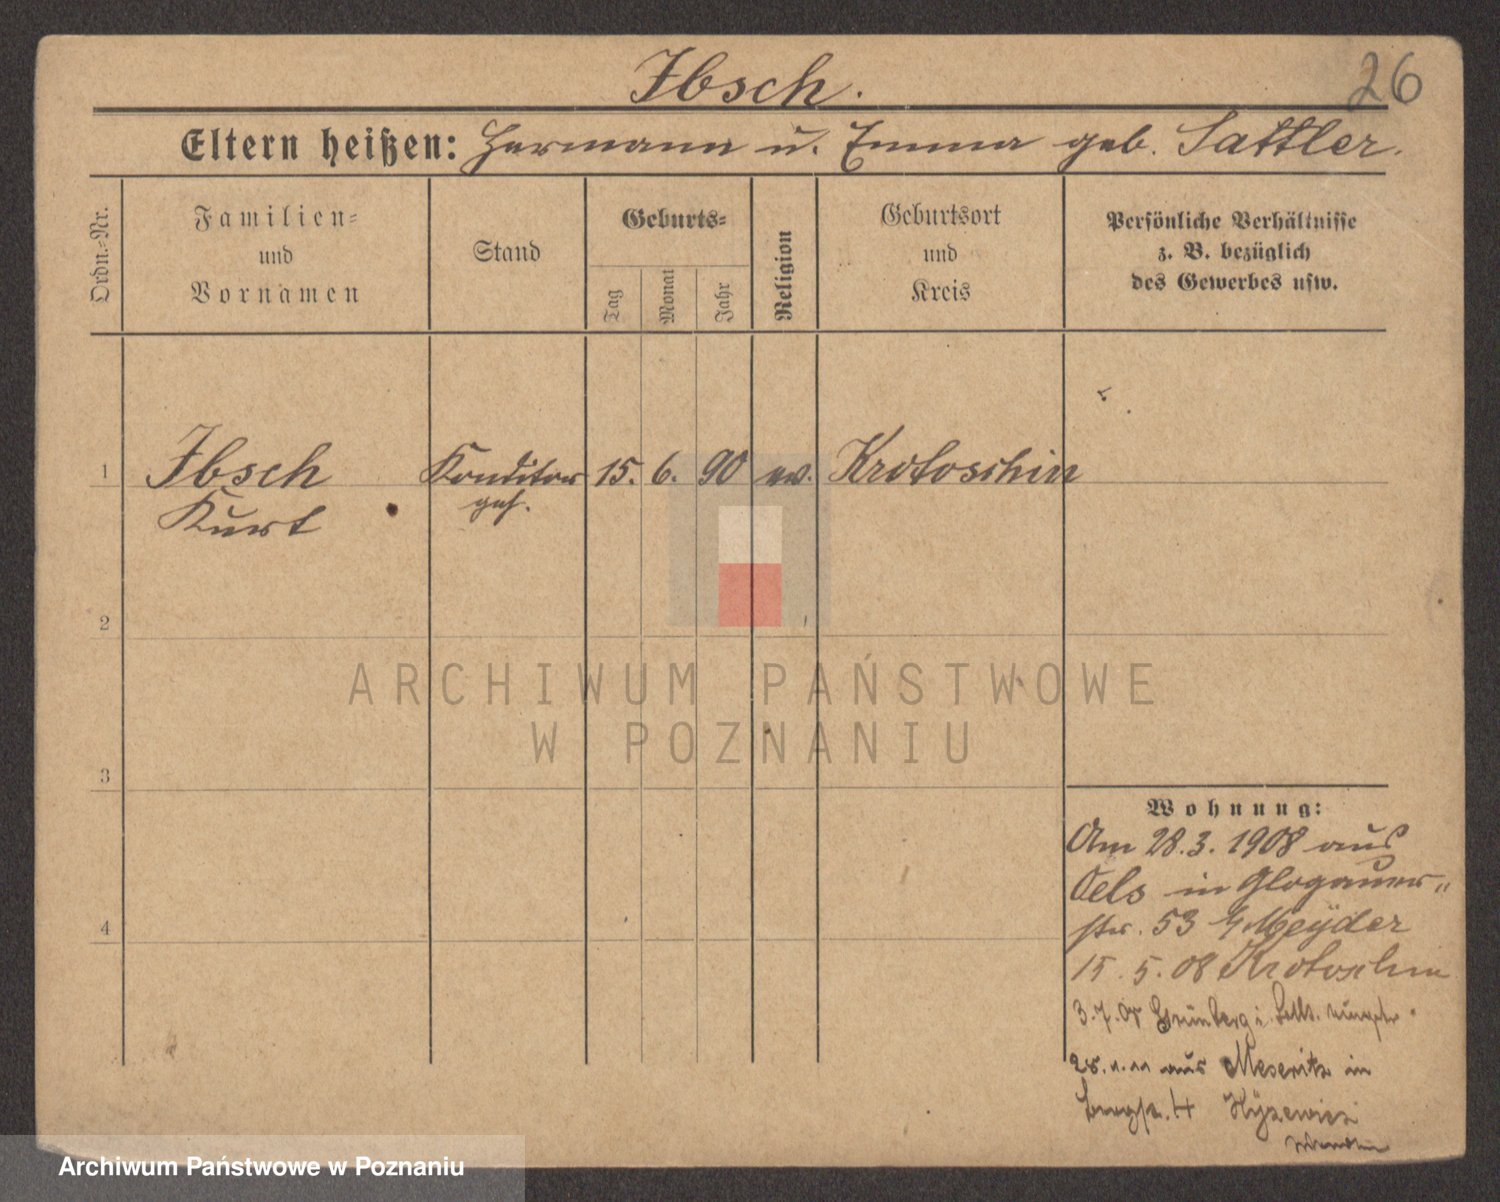 Ibsch.
26
Eltern heißen: Hermann u. Emma geb. Sattler.
Ordn.-Nr.
Familien-
und
Vornamen
Stand
Geburts-
Tag
Monat
Jahr
Religion
Geburtsort
und
Kreis
Persönliche Verhältnisse
z. B. bezüglich
des Gewerbes usw.
1 Ibsch Konditor 15. 6. 90 ev. Krotoschin
Kurt geh.
2
3
4
ARCHIWUM PAŃSTWOWE
W POZNANIU
Wohnung:
Am 28.3.1908 aus
Oels in Glogauer-
str. 53 Meyder
15.5.08 Krotoschin
3.7.08 Grünberg i.
28. aus Meseritz in
4
Archiwum Państwowe w Poznaniu